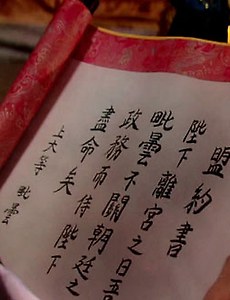 盟約書
陛下
毗曇離宮之日吾
政務不關朝廷之
盡命而侍陛下
上大等 毗曇